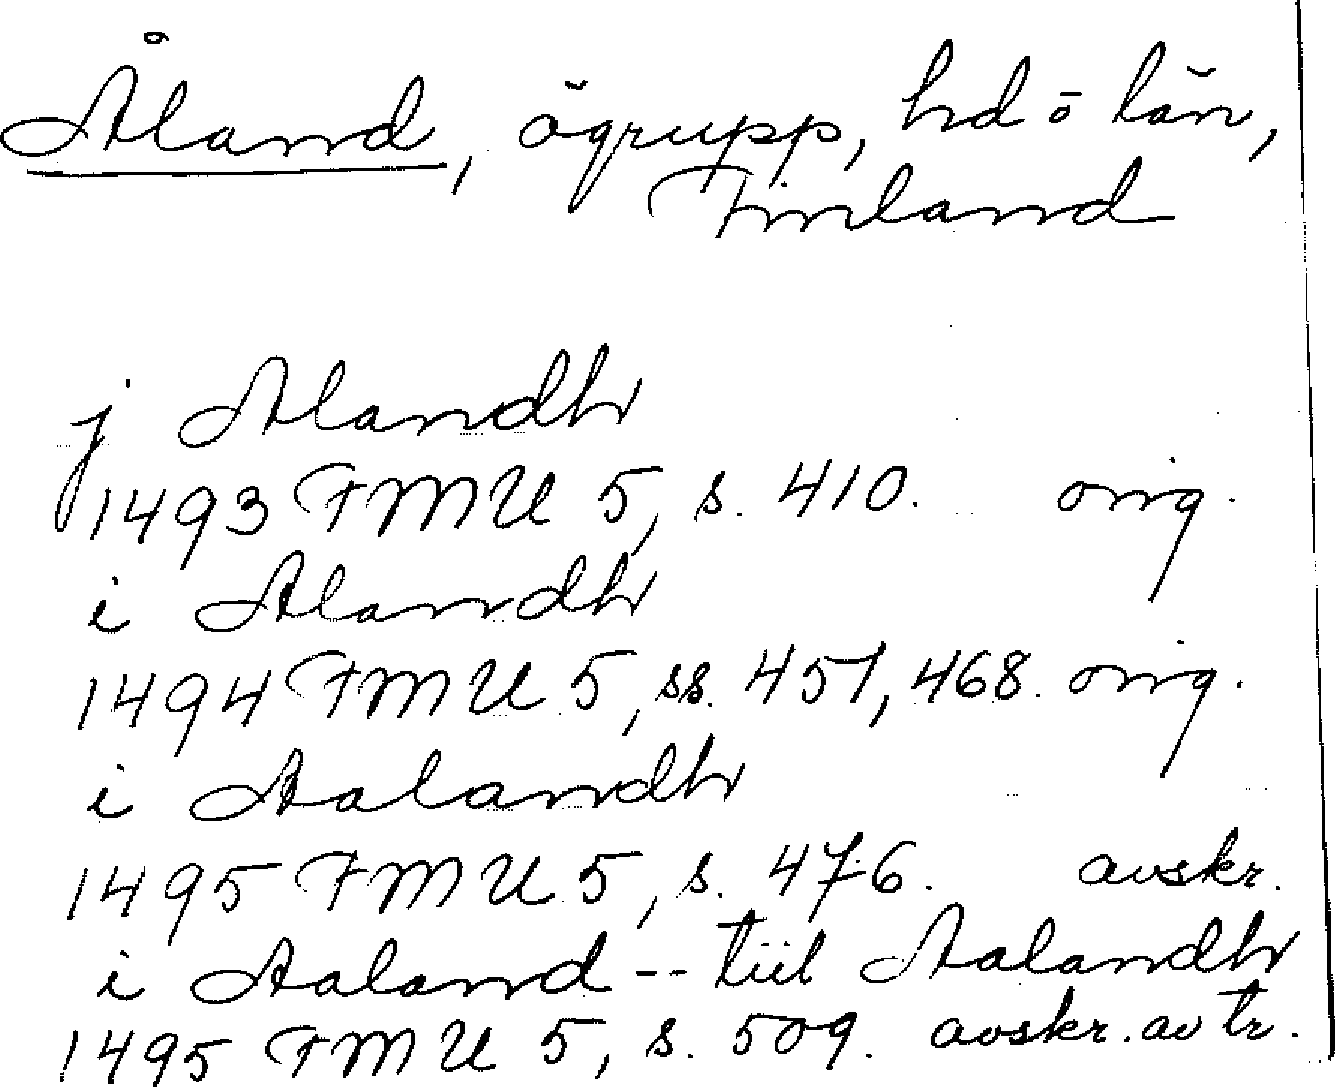 Åland, ögrupp, hd o län,
Finland
j Alandh
1493 FMU 5, s. 410. orig.
i Alandh
1494 FMU 5, ss. 457, 468. orig.
i Aalandh
1495 FMU 5, s. 476. avskr.
i Aaland -- tiil Aalandh
1495 FMU 5, s. 509. avskr. av tr.